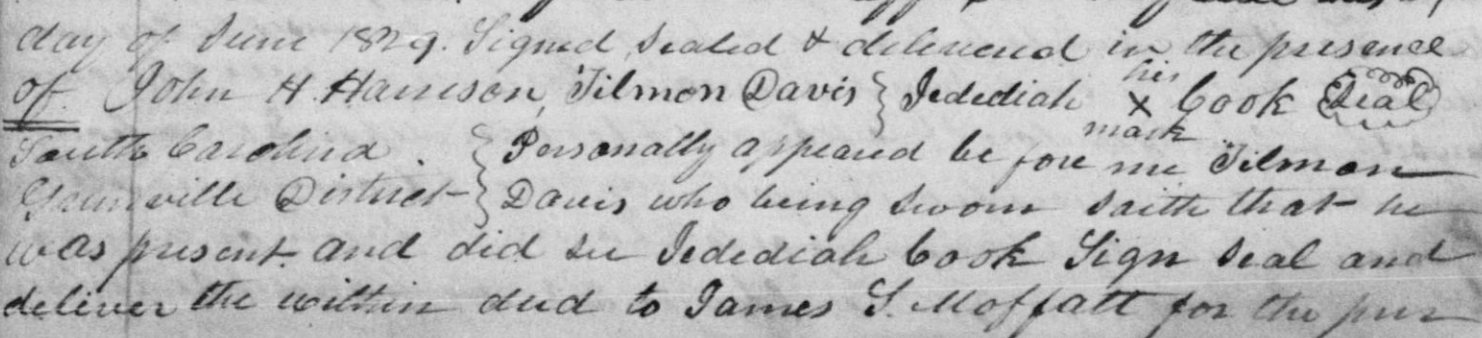 day of June 1829. Signed, Sealed & delivered in the presence
of John H. Harrison, Tilmon Davis } Jedediah his X mark Cook Seal
South Carolina } Personally appeared before me Tilmon
Greenville District } Davis who being sworn saith that he
was present and did see Jedediah Cook Sign seal and
deliver the within deed to James S. Moffatt for the pur